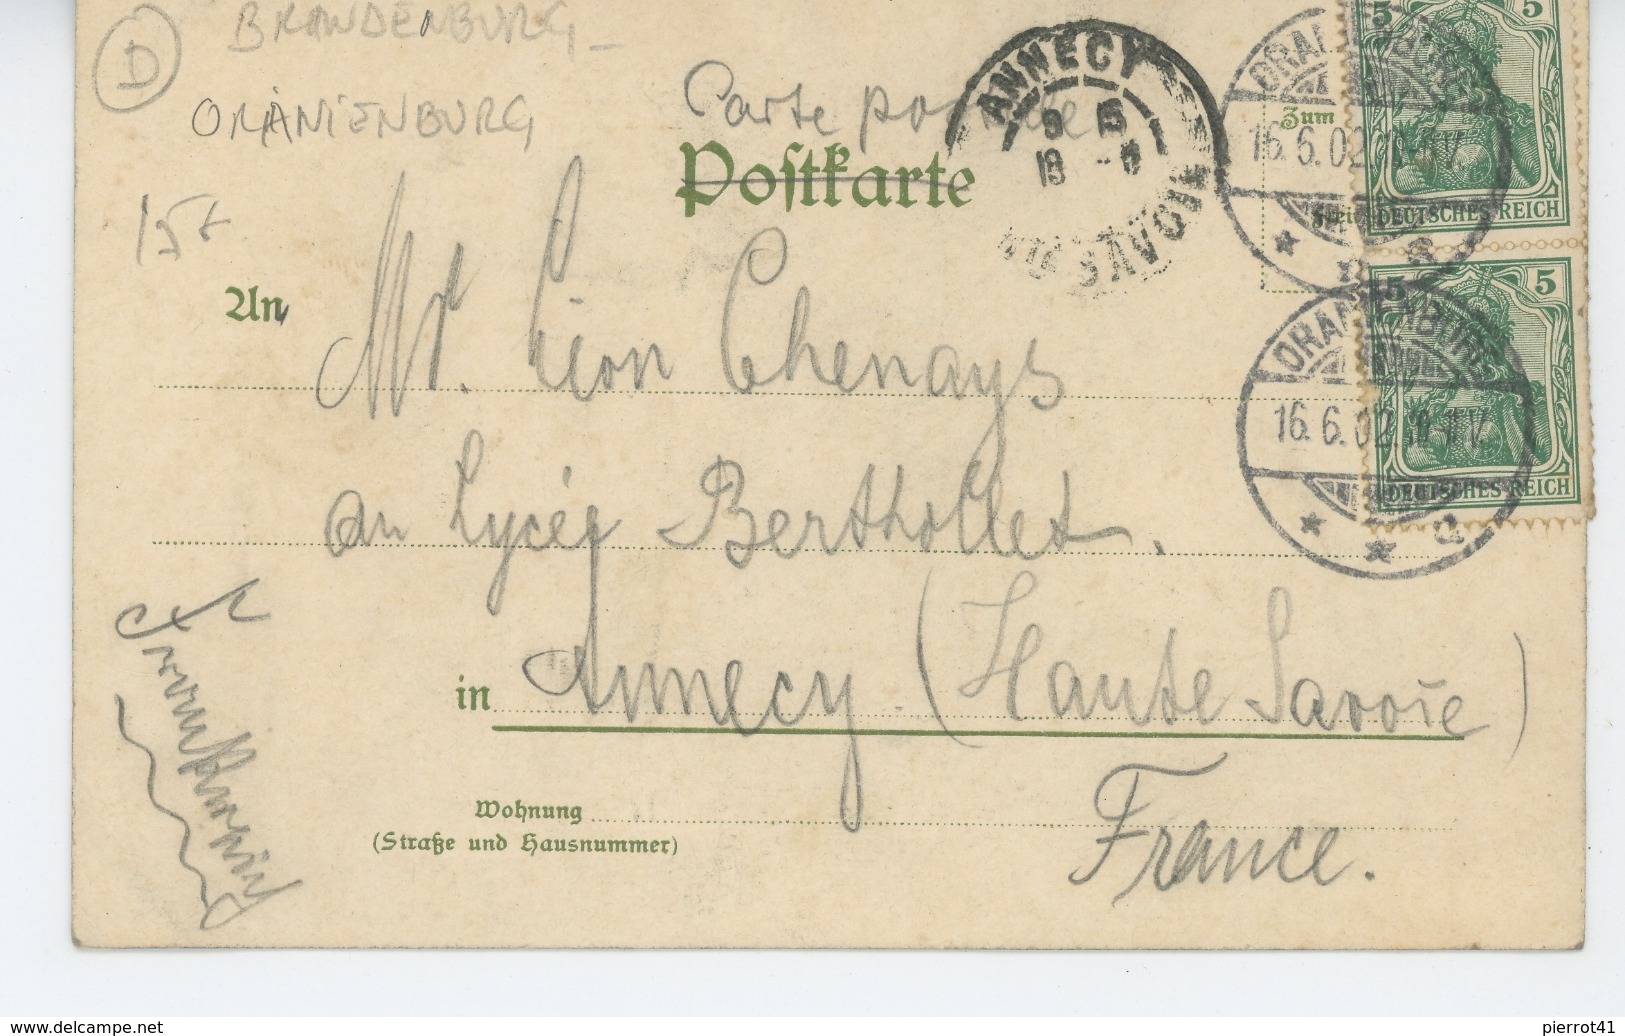 D
BRANDENBURG -
ORANIENBURG
15€
Carte postale
Postkarte
ANNECY
Hte SAVOIE
ORANIENBURG
16.6.02.10-11V
Zum
DEUTSCHES REICH
5 5
ORANIENBURG
16.6.02.10-11V
DEUTSCHES REICH
5 5
An
Mr. Léon Chenays
au Lycée Berthollet.
in Annecy (Haute Savoie)
France.
Wohnung
(Straße und Hausnummer)
delcampe.net
pierrot41